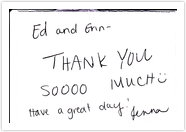 Ed and Erin-
THANK YOU
SOOOO MUCH!
Have a great day!
Jenna